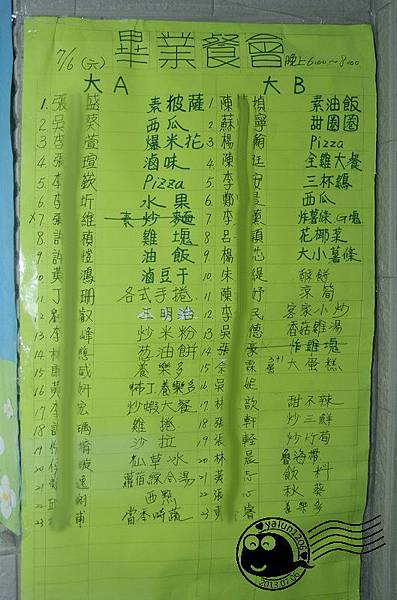 畢業餐會
7/6 (六) 晚上6:00~8:00
大A 大B
1. 張 盛 素披薩 1. 陳 楨 素油飯
2 吳 葵 西瓜 2. 蘇 寧 甜圈圈
3. 李 萱 爆米花 3. 楊 翔 Pizza
4. 張 瑄 滷味 4. 陳 廷 全雞大餐
5. 李 嶔 Pizza 5. 李 安 三杯雞
6. 李 圻 水果 6. 鄭 西瓜
7. 張 維 素炒麵 7. 李 炸薯條
8 許 禎 雞塊 8. 呂 穎 花椰菜
9 許 愷 油飯 9. 楊 芯 大小薯條
10. 黃 鴻 滷豆干 10. 朱 緹
11 丁 珊 各式手捲 11. 陳 妤 涼筍
12 劉 叡 三明治 12. 李 民 客家小炒
13 李 峰 炒米粉 13. 吳 德 香菇雞湯
14 林 葱油餅 14. 張 豪 炸雞塊
15 咸 養樂多 15 余 霖 大蛋糕
16 黃 妍 布丁、養樂多 16 吳 妮
17 李 宏 炒蝦大餐 17 林 歆 甜不辣
18 雞捲 18 張 軒 炒三鮮
19 沙拉 19. 張 輕 炒竹筍
20 仙草冰 20. 林 晨 滷海帶
21 逸 蘿蔔絲蛤湯 21. 黃 飲料
22 西點 22 張 心 秋葵
23 甫 當季時蔬 23 睿 養樂多
yalun1206
2013.07.06